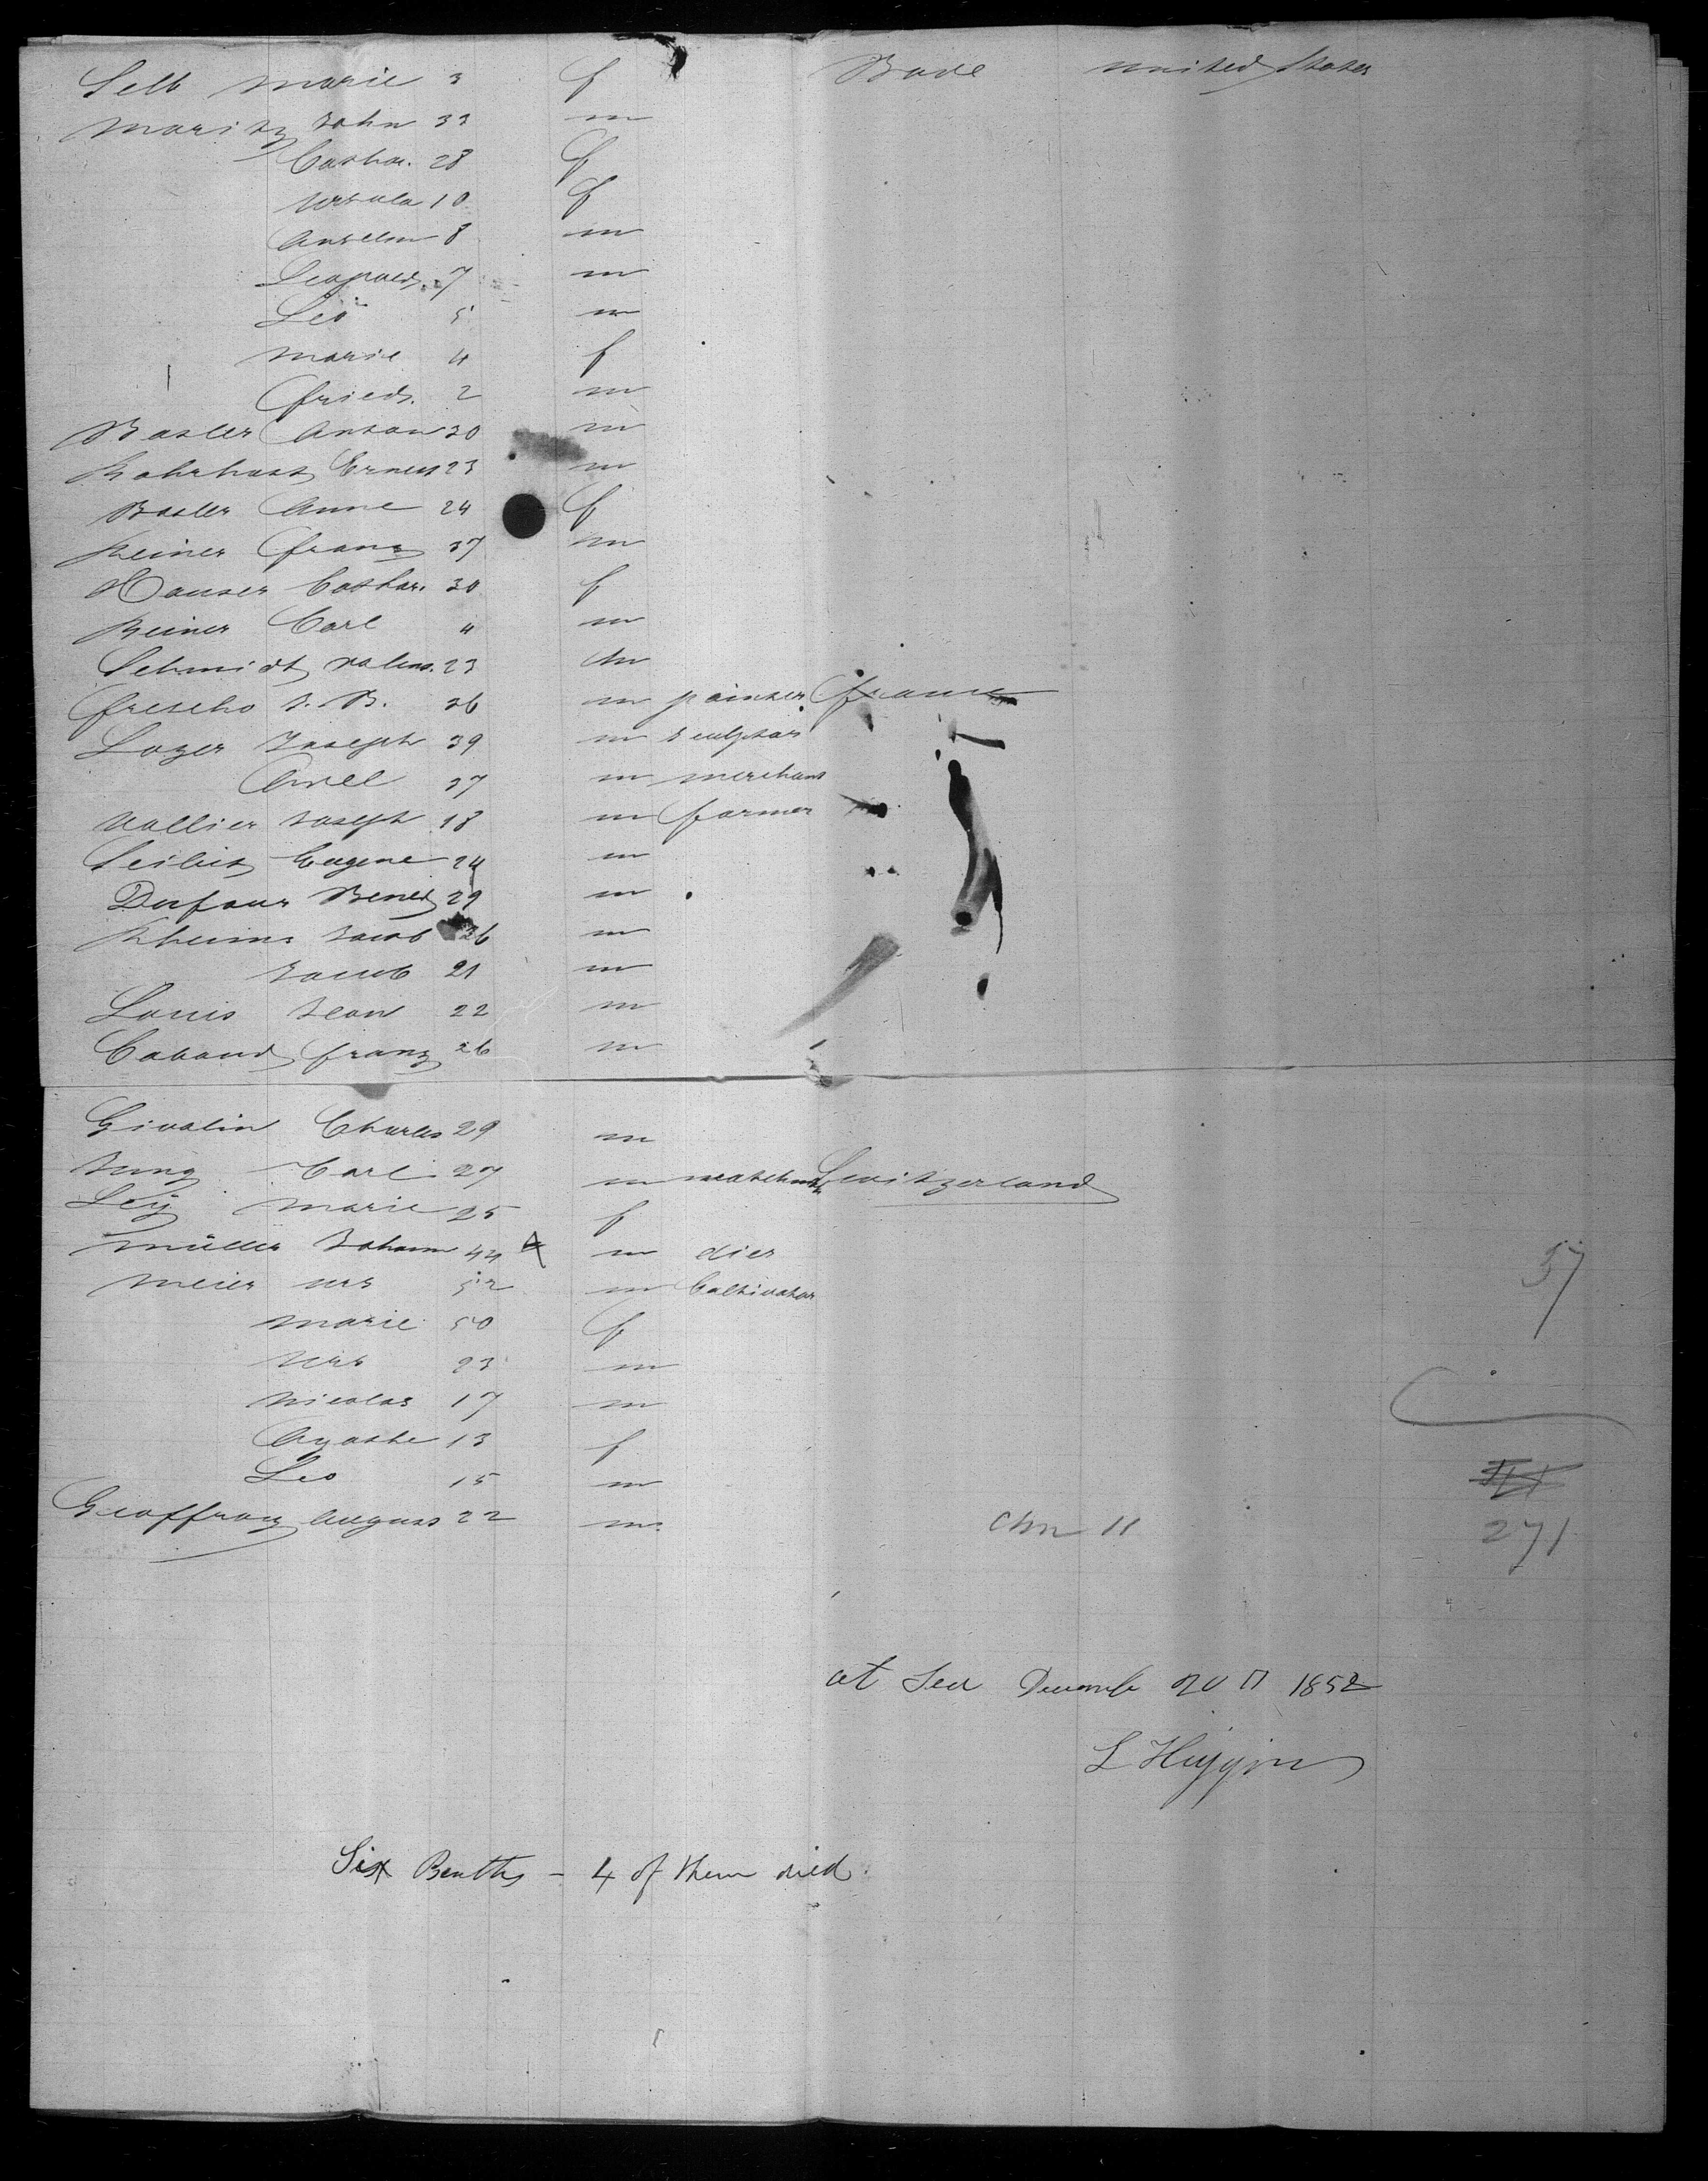 Selb Marie 3 f Bade United States
Moritz John 33 m
Cathar. 28 f
Ursula 10 f
Anselm 8 m
Leopold 7 m
Leo 5 m
Marie 4 f
Fried. 2 m
Basler Anton 30 m
Rohrhast Ernest 23 m
Basler Anne 24 f
Reiner Franz 37 m
Hauser Cathar. 30 f
Reiner Carl " m
Schmidt Valent. 23 m
Frescho J. B. 36 m painter France
Lozer Joseph 39 m sculptor
37 m merchant
Vallier Joseph 18 m farmer
Eugene 24 m
Dufour Bened 29 m
Rheims Jacob 36 m
Jacob 21 m
Louis Jean 22 m
Cabaud Franz 26 m
Givalin Charles 29 m
Jung Carl 27 m Switzerland
Ley Marie 25 f
Müller Johann 44 m dier
Meier Urs 52 m Cultivator
Marie 50 f
Urs 23 m
Nicolas 17 m
Agathe 13 f
Leo 15 m
Geoffroy August 22 m
57
Chn 11
271
at Sea December 20 1852
L Higgins
Six Births - 4 of them died